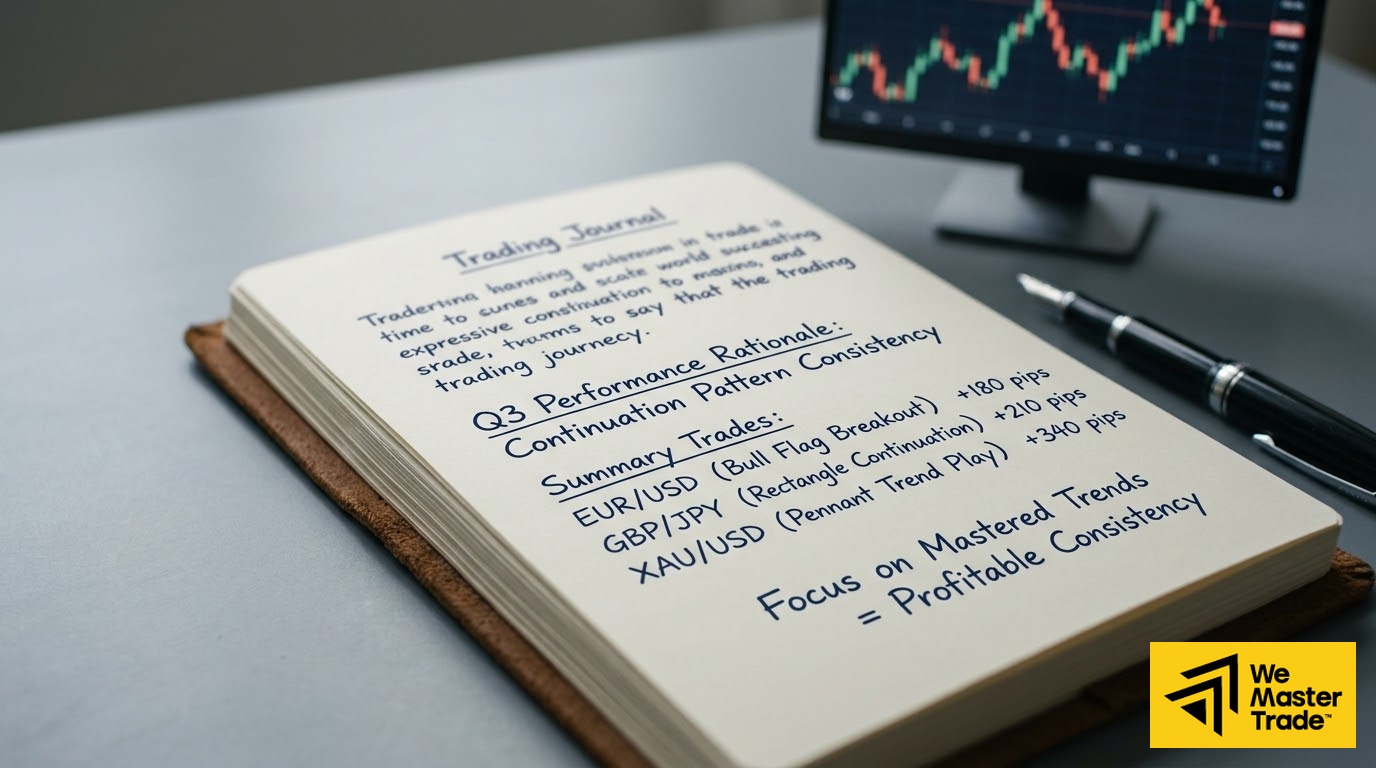 Trading Journal
hanning in trade is
time to and scale world
expressive to and
to say that the trading
trading journecy.
Q3 Performance Rationale:
Continuation Pattern Consistency
Summary Trades:
EUR/USD (Bull Flag Breakout) +180 pips
GBP/JPY (Rectangle Continuation) +210 pips
XAU/USD (Pennant Trend Play) +340 pips
Focus on Mastered Trends
= Profitable Consistency
We
Master
Trade™